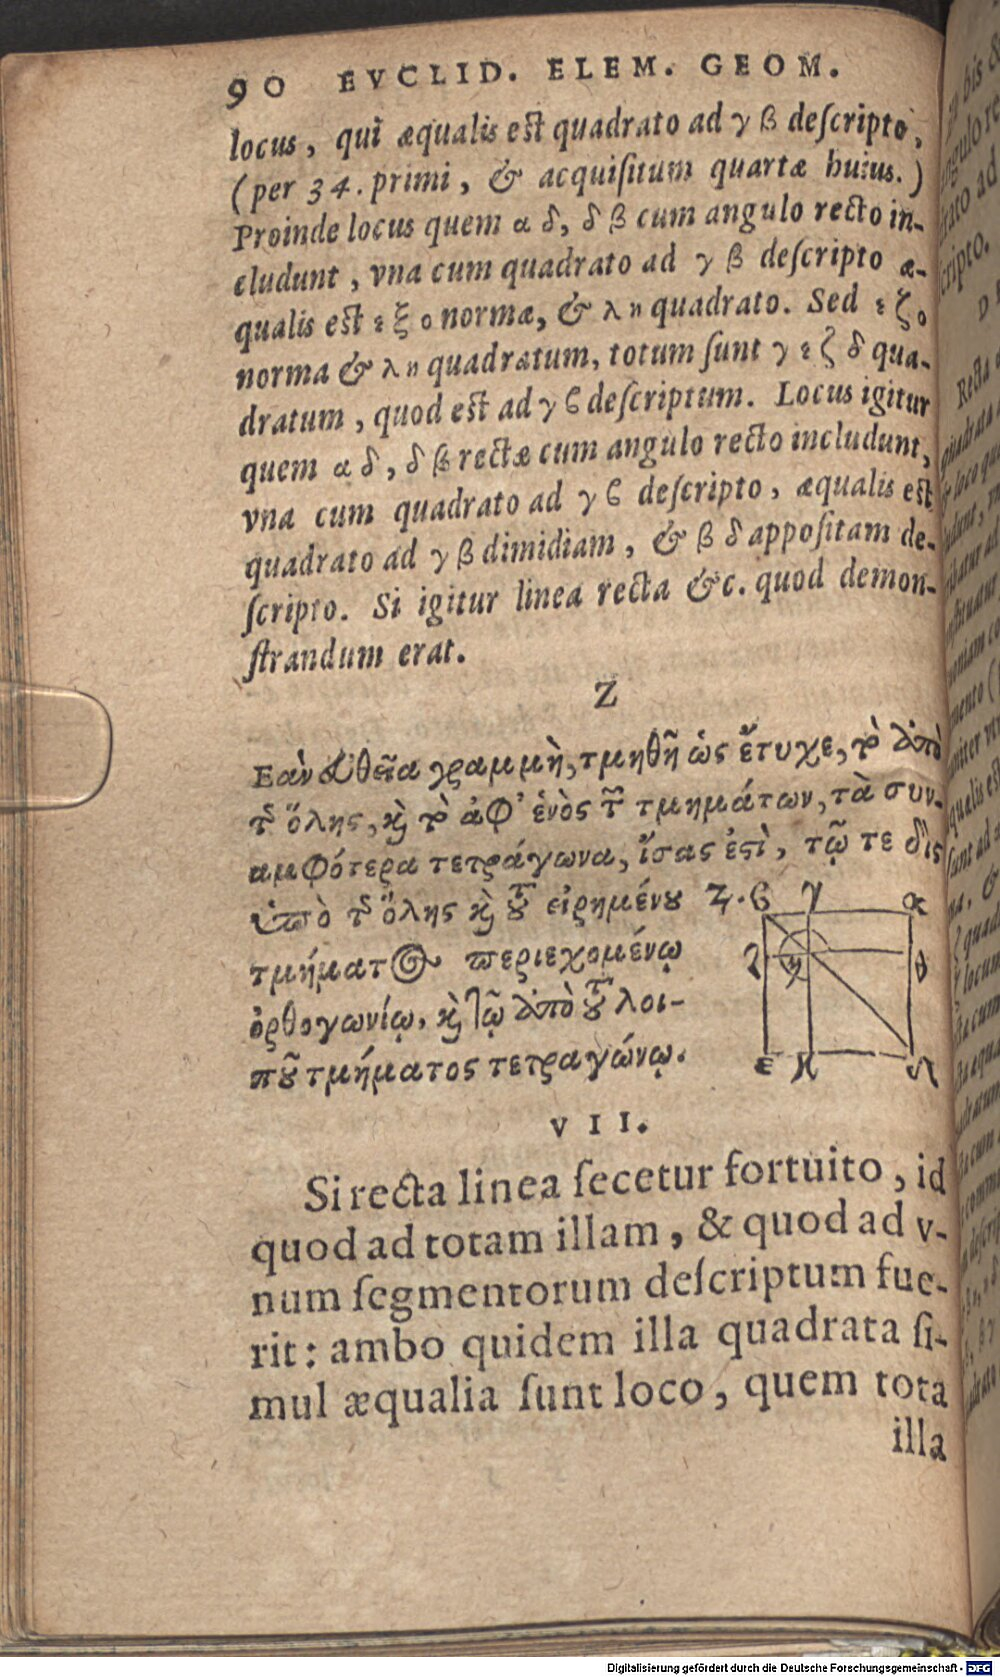 90 EVCLID. ELEM. GEOM.
locus, qui æqualis est quadrato ad γ β descripto,
(per 34. primi, & acquisitum quartæ huius.)
Proinde locus quem α δ, δ β cum angulo recto in-
cludunt, vna cum quadrato ad γ β descripto æ-
qualis est ε ξ ο normæ, & λ η quadrato. Sed ε ζ ο
norma & λ η quadratum, totum sunt γ ε ζ δ qua-
dratum, quod est ad γ ϐ descriptum. Locus igitur
quem α δ, δ β rectæ cum angulo recto includunt,
vna cum quadrato ad γ ϐ descripto, æqualis est
quadrato ad γ β dimidiam, & β δ appositam de-
scripto. Si igitur linea recta &c. quod demon-
strandum erat.
Z
Εὰν εὐθεῖα γραμμὴ, τμηθῇ ὡς ἔτυχε, τὸ ἀπὸ
τῆς ὅλης, καὶ τὸ ἀφ' ἑνὸς τῶν τμημάτων, τὰ συν-
αμφότερα τετράγωνα, ἴσας ἐστὶ, τῷ τε δὶς
ὑπὸ τῆς ὅλης καὶ τοῦ εἰρημένου
τμήματος περιεχομένῳ
ὀρθογωνίῳ, καὶ τῷ ἀπὸ τοῦ λοι-
ποῦ τμήματος τετραγώνῳ.
Z. ϐ γ α
ζ η θ
ε κ δ
VII.
Si recta linea secetur fortuito, id
quod ad totam illam, & quod ad v-
num segmentorum descriptum fue-
rit: ambo quidem illa quadrata si-
mul æqualia sunt loco, quem tota
illa
Digitalisierung gefördert durch die Deutsche Forschungsgemeinschaft - DFG